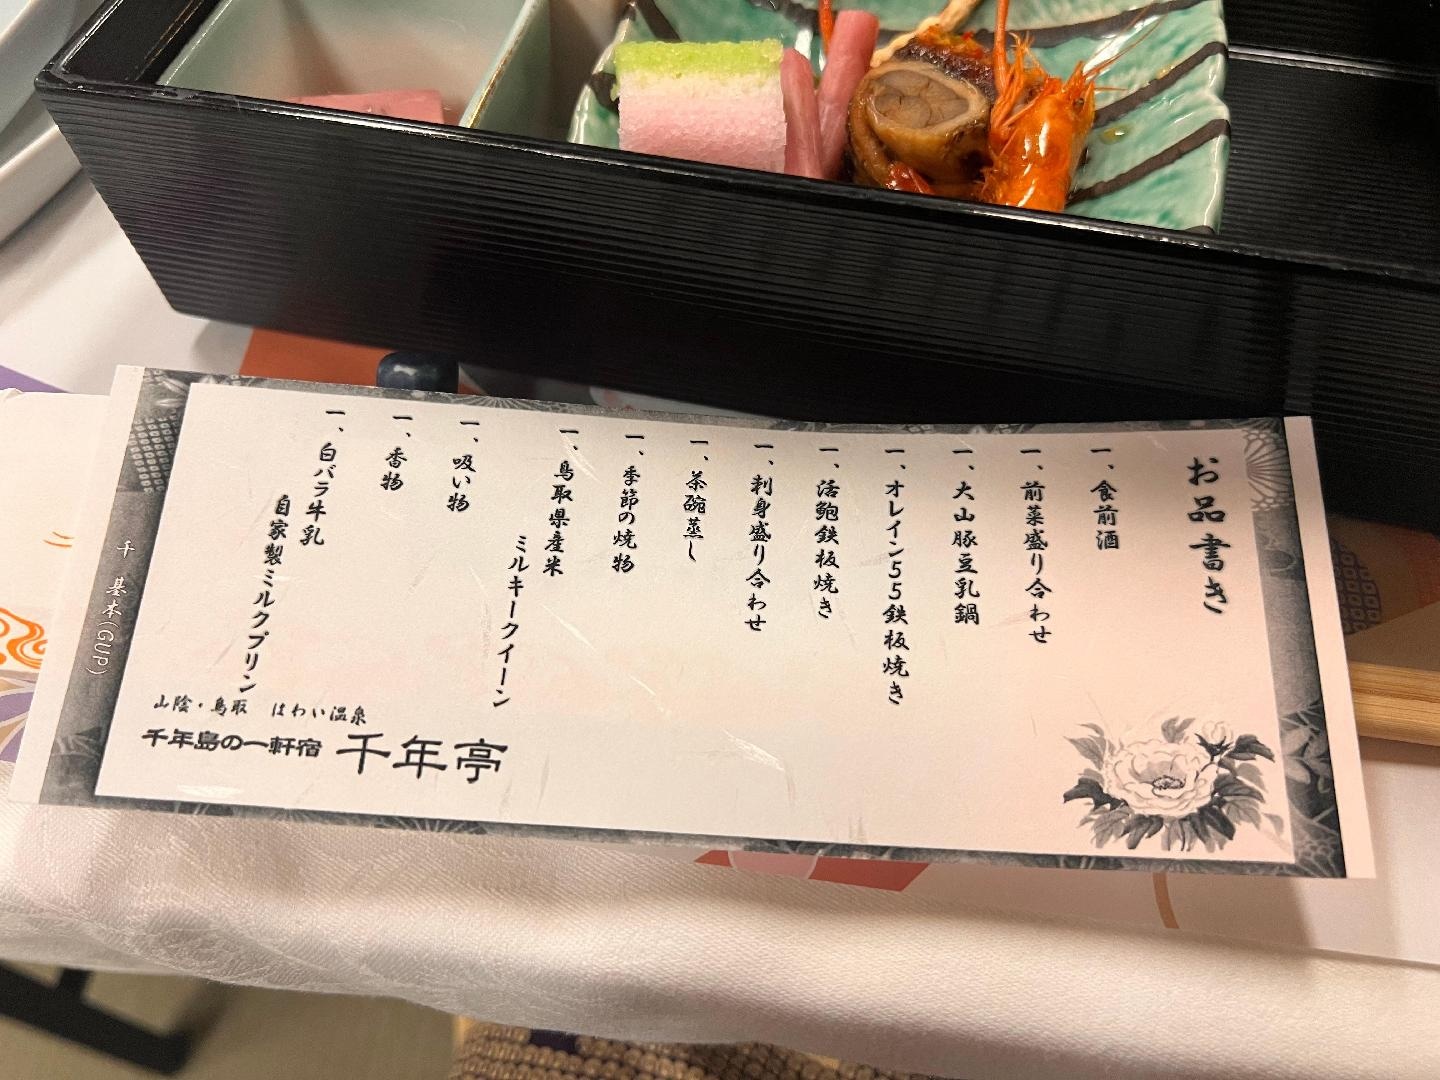 お品書き
一、食前酒
一、前菜盛り合わせ
一、大山豚豆乳鍋
一、オレイン55鉄板焼き
一、活鮑鉄板焼き
一、刺身盛り合わせ
一、茶碗蒸し
一、季節の焼物
一、鳥取県産米
ミルキークイーン
一、吸い物
一、香物
一、白バラ牛乳
自家製ミルクプリン
山陰・鳥取 はわい温泉
千年島の一軒宿 千年亭
千 基本(GUP)